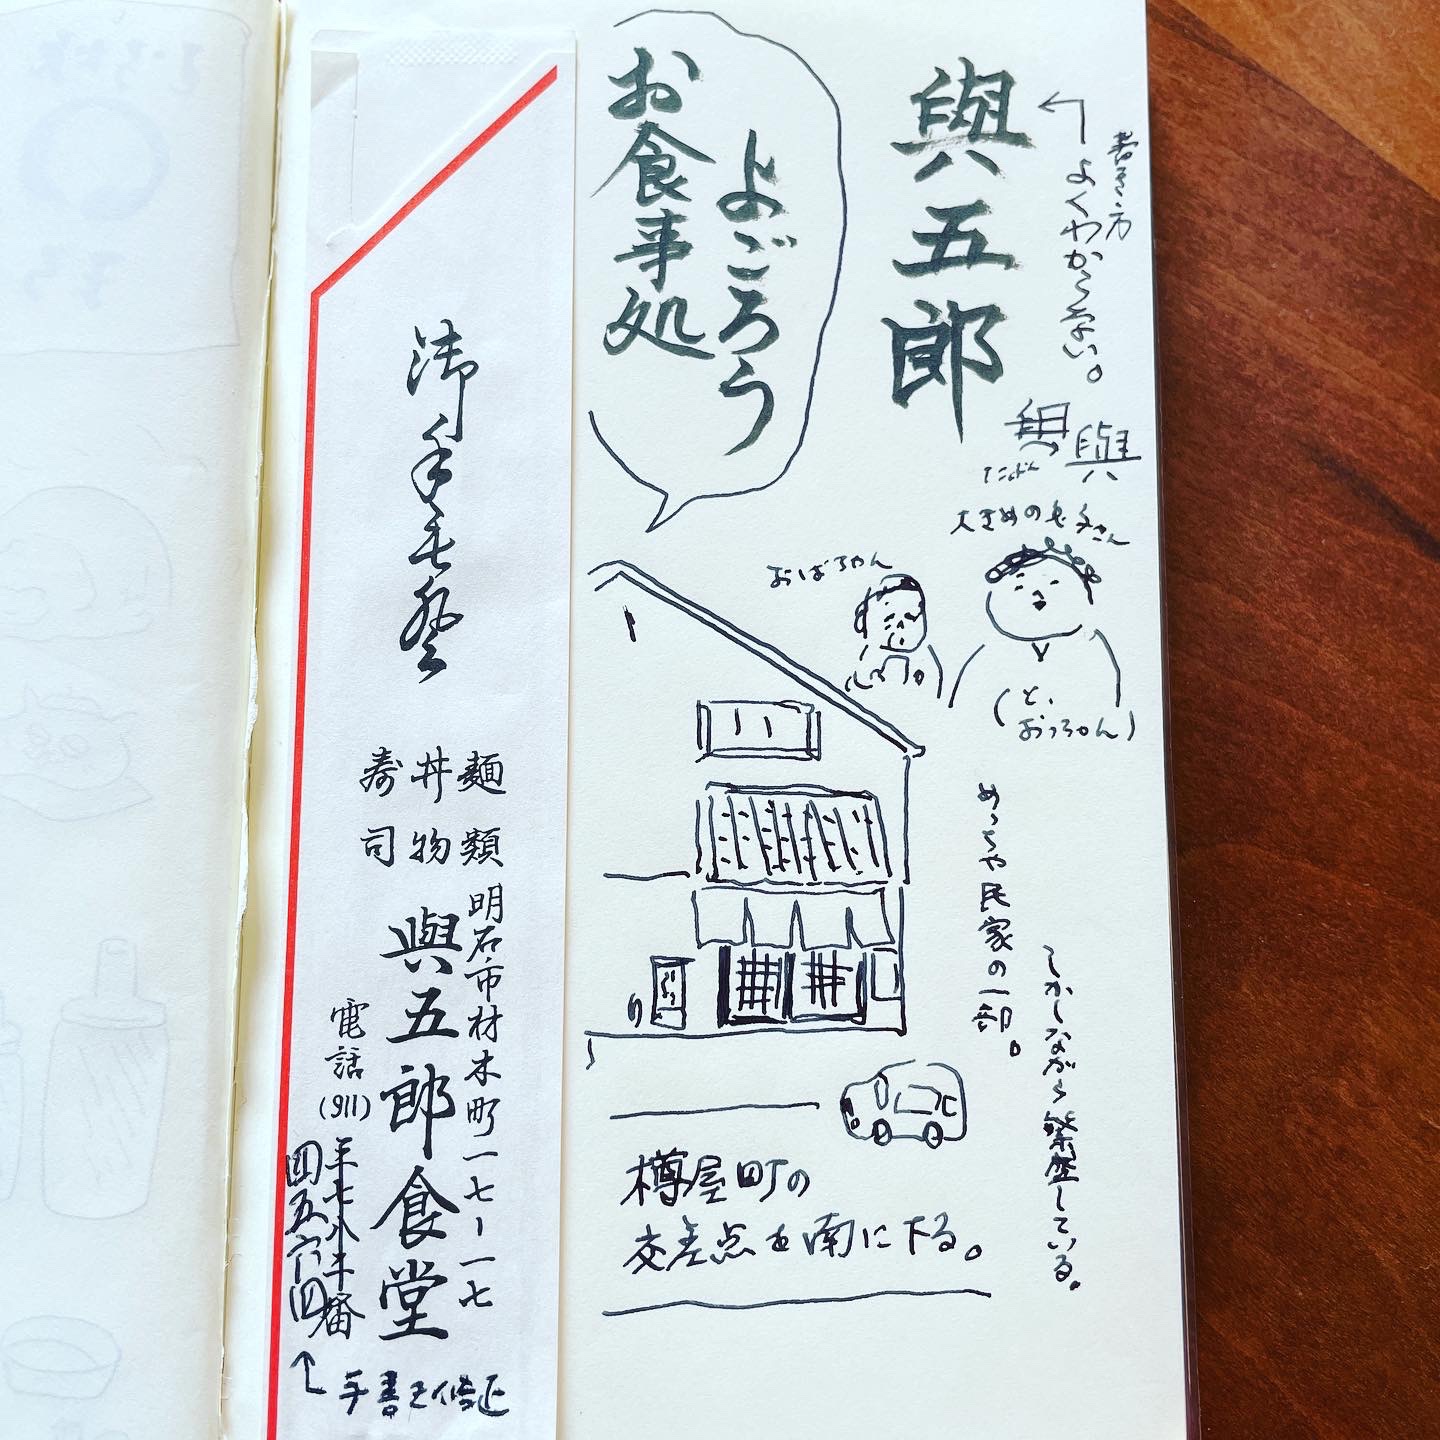 與五郎
書き方
よくわからない。
與
たぶん
よごろう
お食事処
大きめの
おばちゃん
(と、
おっちゃん)
めっちゃ民家の一部。
しかしながら繁盛している。
樽屋町の
交差点を南に下る。
御手もと
麺類
丼物
寿司
明石市材木町一七-一七
與五郎食堂
電話(911)
四五六四
手書き修正